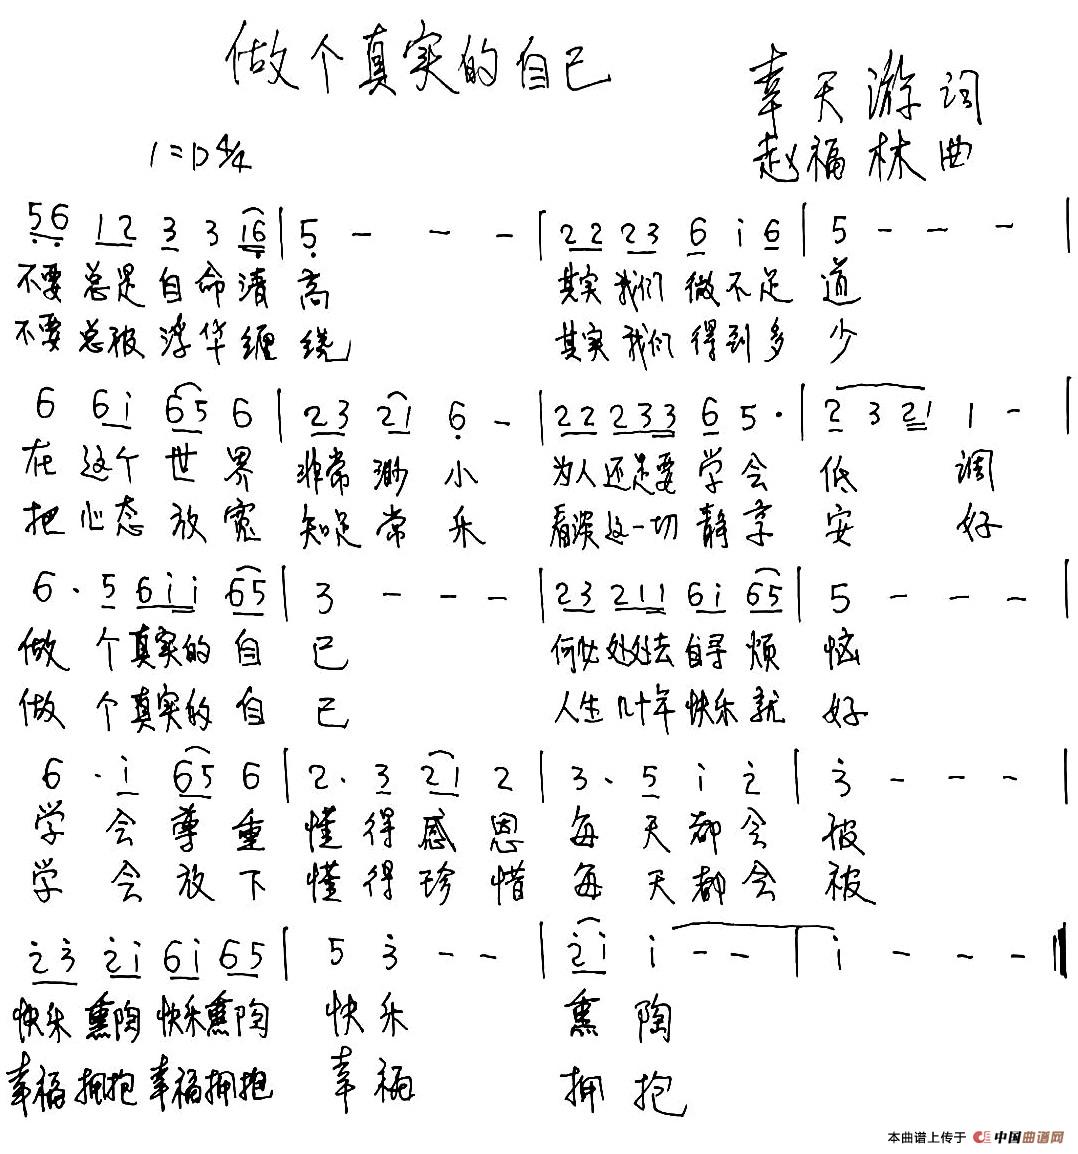 做个真实的自己
幸天游 词
赵福林 曲
1=D 4/4
56 12 3 3 i6 | 5 - - - | 22 23 6 i 6 | 5 - - - |
不要总是自命清高 其实我们微不足道
不要总被浮华缠绕 其实我们得到多少
6 6i 65 6 | 23 21 6 - | 22 233 6 5· | 2 3 21 1 - |
在这个世界 非常渺小 为人还是要学会低调
把心态放宽 知足常乐 看淡这一切静享安好
6· 5 6ii 65 | 3 - - - | 23 211 6i 65 | 5 - - - |
做个真实的自己 何必处处去自寻烦恼
做个真实的自己 人生几十年快乐就好
6· i 65 6 | 2· 3 21 2 | 3· 5 i 2 | 3 - - - |
学会尊重 懂得感恩 每天都会被
学会放下 懂得珍惜 每天都会被
23 2i 6i 65 | 5 3 - - | 2i i - - | i - - - ‖
快乐熏陶快乐熏陶 快乐 熏陶
幸福拥抱幸福拥抱 幸福 拥抱
本曲谱上传于 中国曲谱网